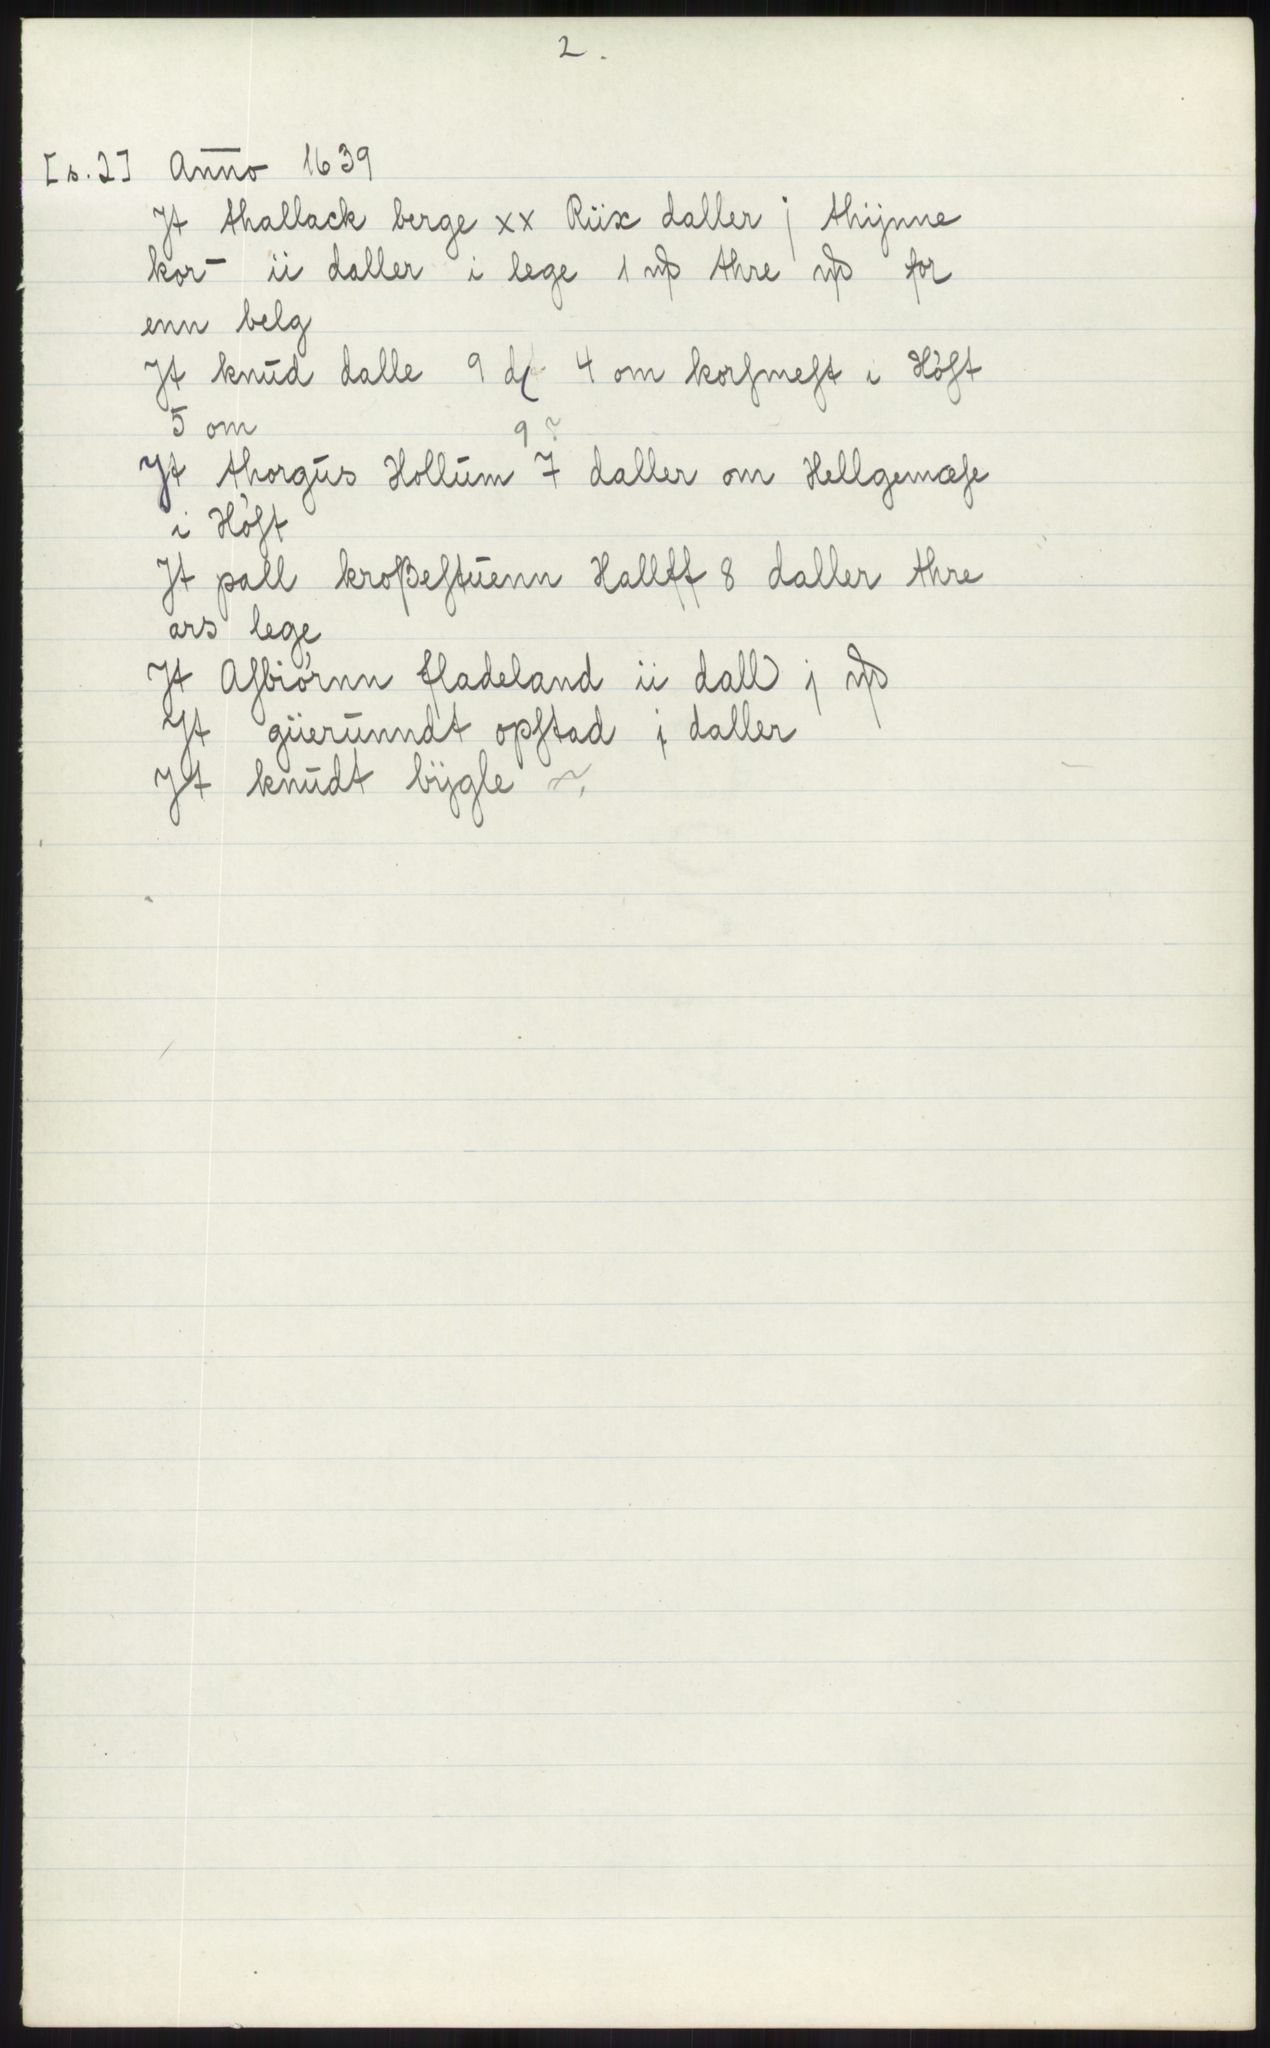 2.
[s.2] Anno 1639
Jt thallack berge xx Riix daller j thijnne
kor- ii daller i lege 1 thre for
enn belg
Jt knūd dalle 9 4 om korſmeſt i Höſt
5 om 9?
Jt thorgūs Hollūm 7 daller om Hellgemæſe
i Höſt
Jt pall kroßeſtūenn Hallff 8 daller thre
ars lege
Jt Aſbiörnn ffladeland ii dall j
Jt gūerūnndt opſtad j daller
Jt knūdt bijgle